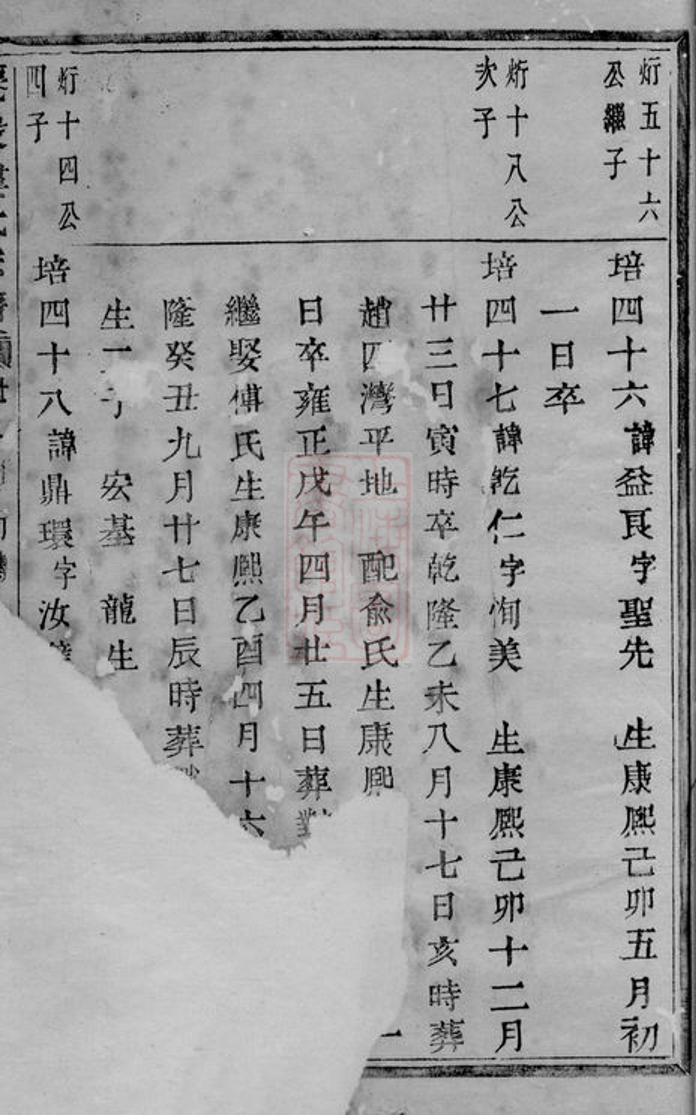 炘五十六
公繼子
培四十六諱益艮字聖先　生康熙己卯五月初
一日卒
炘十八公
次子
培四十七諱乾仁字洵美　生康熙己卯十二月
廿三日寅時卒乾隆乙未八月十七日亥時葬
趙四灣平地　配俞氏生康熙
一
日卒雍正戊午四月廿五日葬對
繼娶傅氏生康熙乙酉四月十六
隆癸丑九月廿七日辰時葬
生二子　宏基　龍生
炘十四公
四子
培四十八諱鼎環字汝